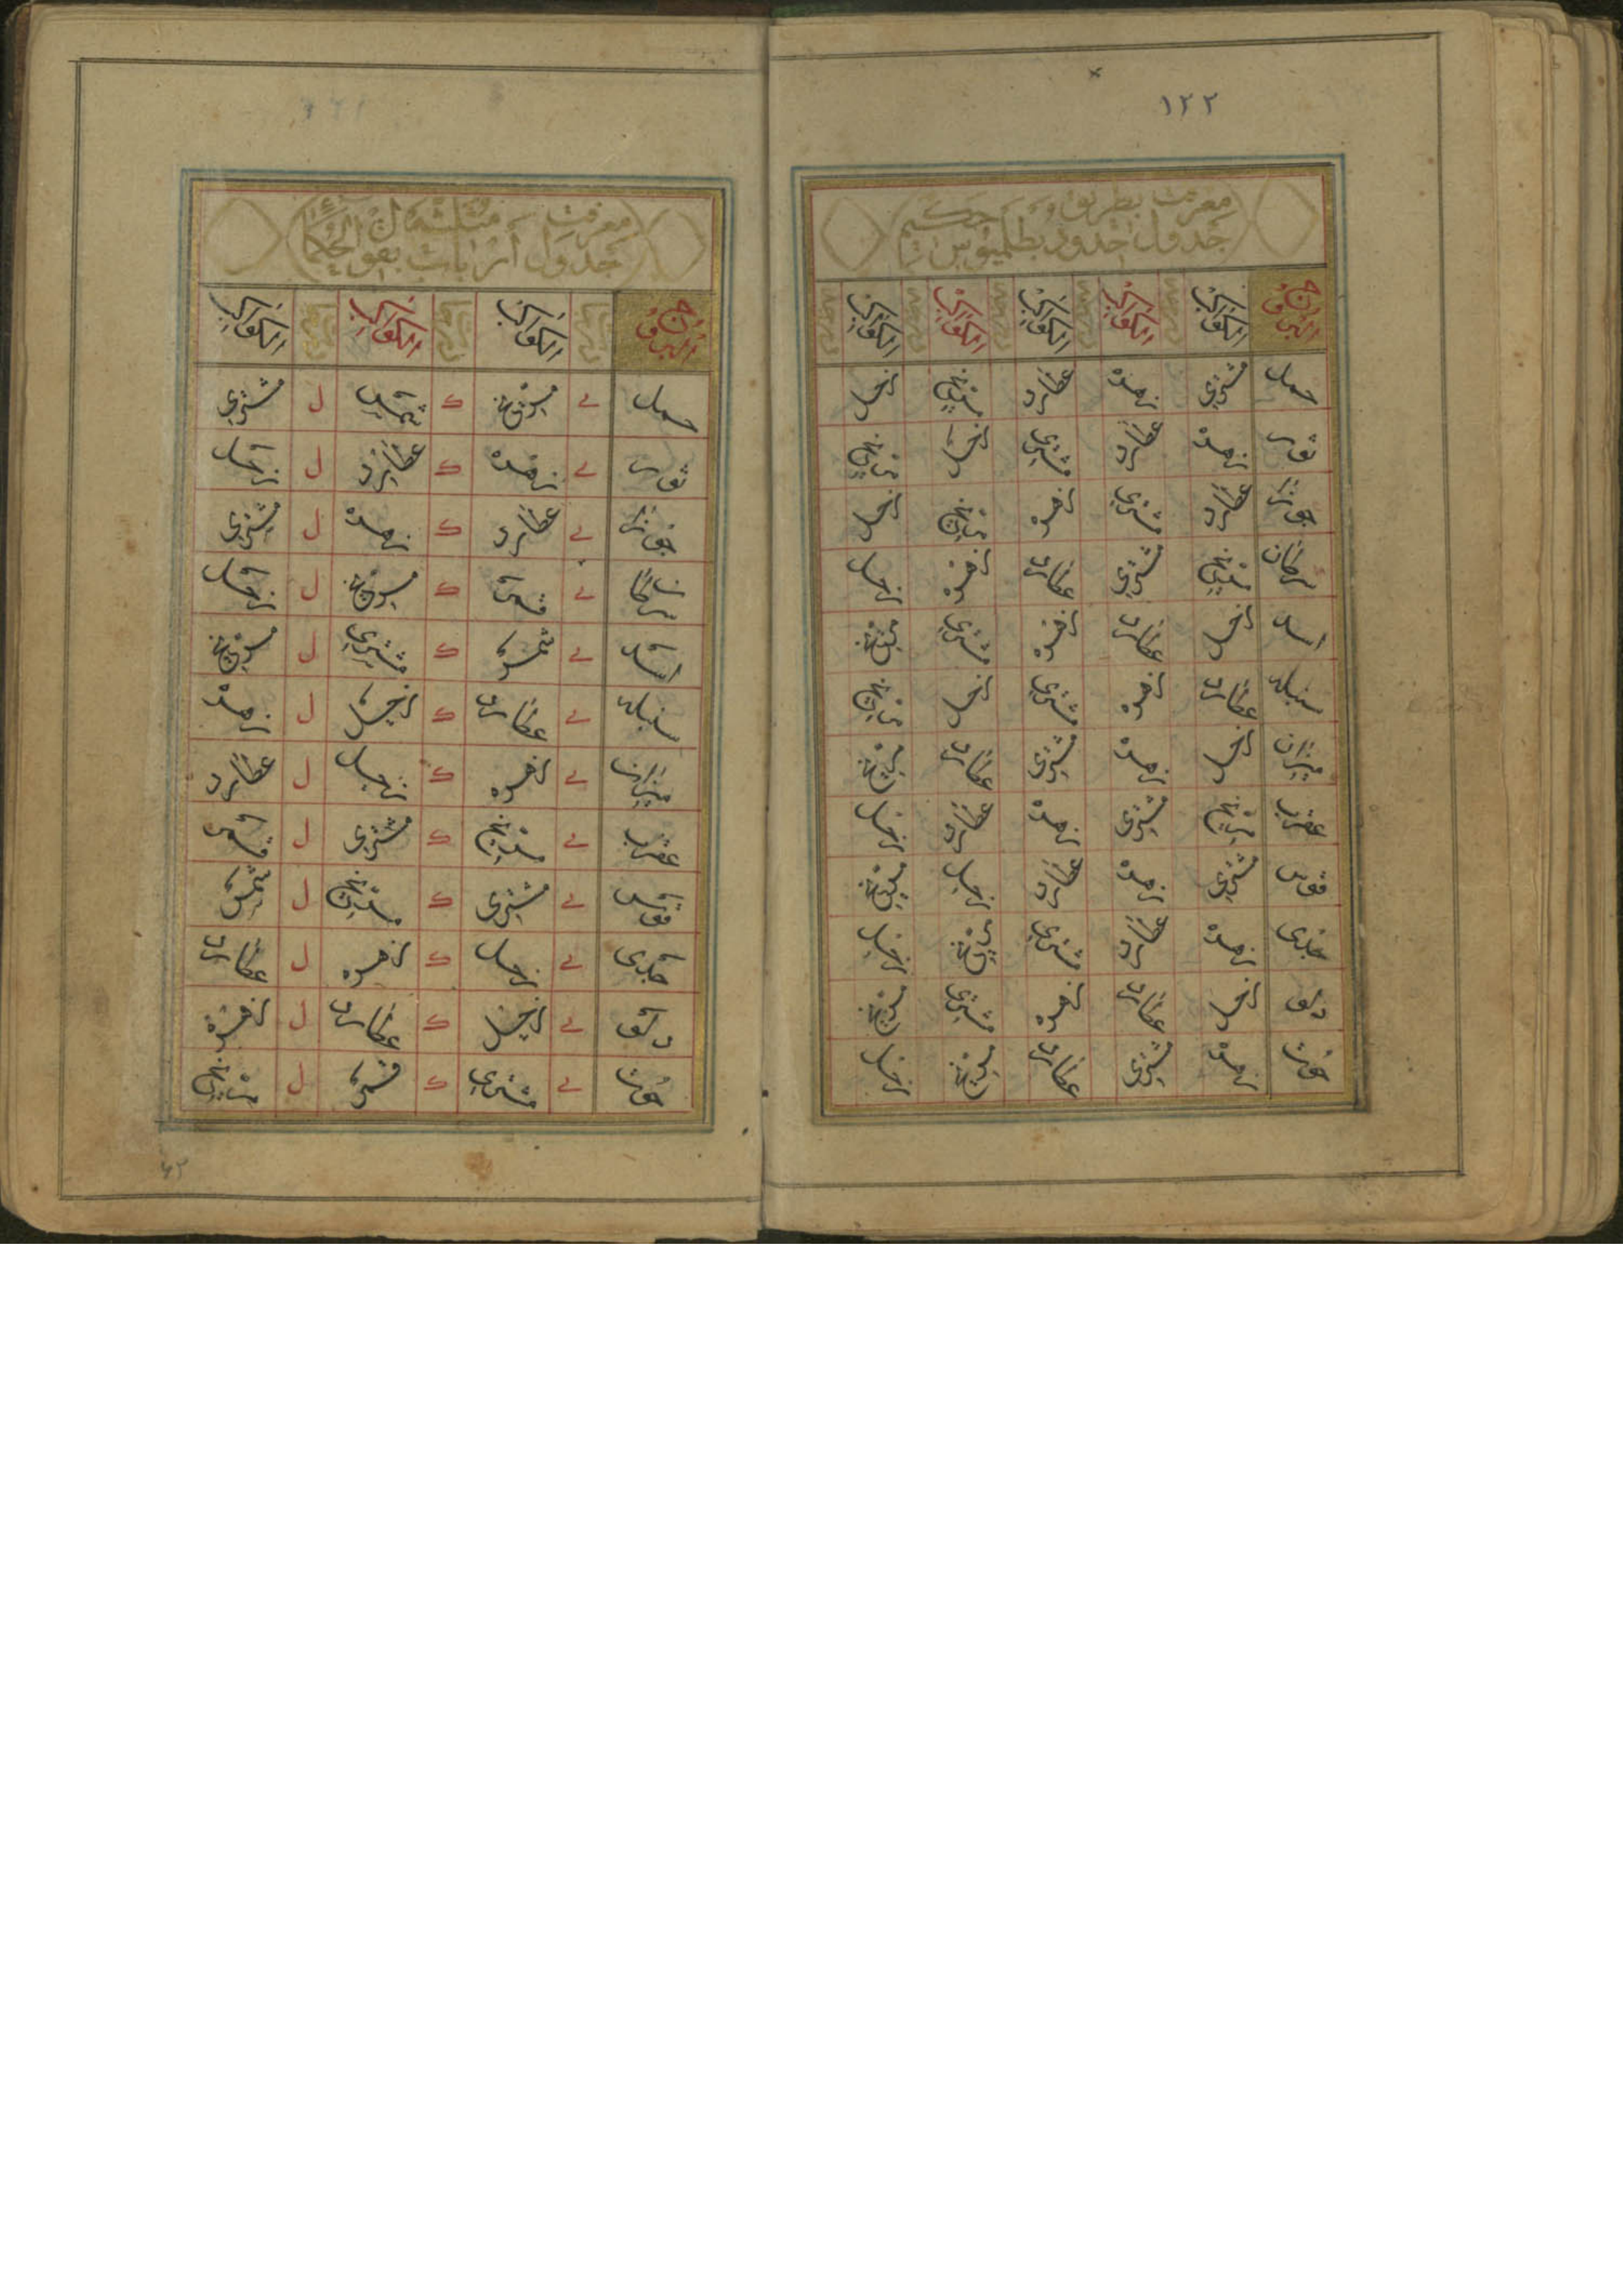 ١٢٢
معرفت بطريق حكيم
جدول حدود بطلميوس
البروج الكواكب الكواكب الكواكب الكواكب الكواكب
حمل مشتري زهره عطارد مريخ زحل
ثور زهره عطارد مشتري زحل مريخ
جوزا عطارد مشتري زهره مريخ زحل
سرطان مريخ مشتري عطارد زهره زحل
اسد زحل عطارد زهره مشتري مريخ
سنبله عطارد زهره مشتري زحل مريخ
ميزان زحل زهره مشتري عطارد مريخ
عقرب مريخ مشتري زهره عطارد زحل
قوس مشتري زهره عطارد زحل مريخ
جدى زهره عطارد مشتري مريخ زحل
دلو زحل عطارد زهره مشتري مريخ
حوت زهره مشتري عطارد مريخ زحل
معرفت مثلثهاى
جدول ارباب بقول حكما
البروج الكواكب الكواكب الكواكب
حمل ى مريخ ك شمس ل مشتري
ثور ى زهره ك عطارد ل زحل
جوزا ى عطارد ك زهره ل مشتري
سرطان ى قمر ك مريخ ل زحل
اسد ى شمس ك مشتري ل مريخ
سنبله ى عطارد ك زحل ل زهره
ميزان ى زهره ك زحل ل عطارد
عقرب ى مريخ ك مشتري ل قمر
قوس ى مشتري ك مريخ ل شمس
جدى ى زحل ك زهره ل عطارد
دلو ى زحل ك عطارد ل زهره
حوت ى مشتري ك قمر ل مريخ